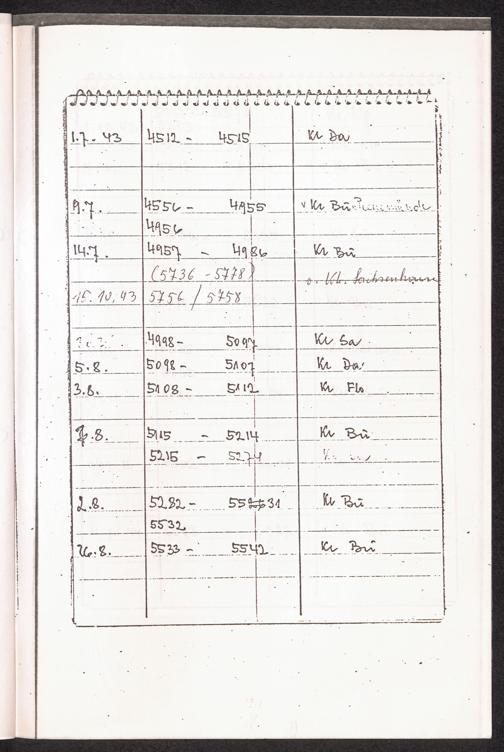 1.7.-43 4512 - 4515 Kl Da
9.7. 4556 - 4955 v Kl Bü
4956
14.7. 4957 - 4986 Kl Bü
(5736 - 5778)
15.10.43 5756 / 5758
4998 - 5097 Kl Sa
5.8. 5098 - 5107 Kl Da
3.8. 5108 - 5112 Kl Flo
5115 - 5214 Kl Bü
5215 - 5274
2.8. 5282 - 5531 Kl Bü
5532
26.8. 5533 - 5542 Kl Bü